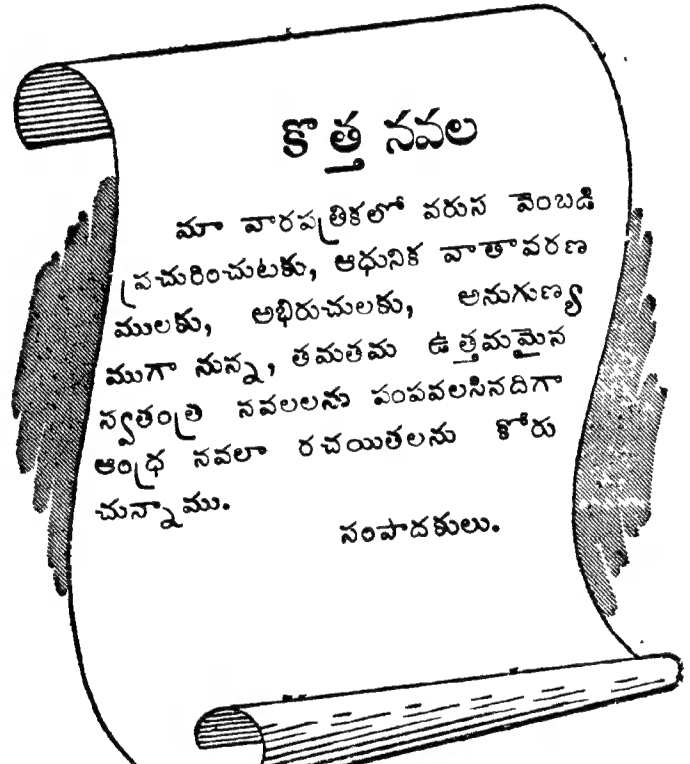 కొత్త నవల
మా వారపత్రికలో వరుస వెంబడి
ప్రచురించుటకు, ఆధునిక వాతావరణ
ములకు, అభిరుచులకు, అనుగుణ్య
ముగా నున్న, తమతమ ఉత్తమమైన
స్వతంత్ర నవలలను పంపవలసినదిగా
ఆంధ్ర నవలా రచయితలను కోరు
చున్నాము.
సంపాదకులు.